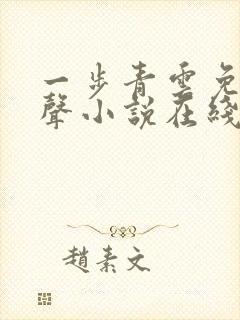 一步青雲免
聲小說在綫
趙素文